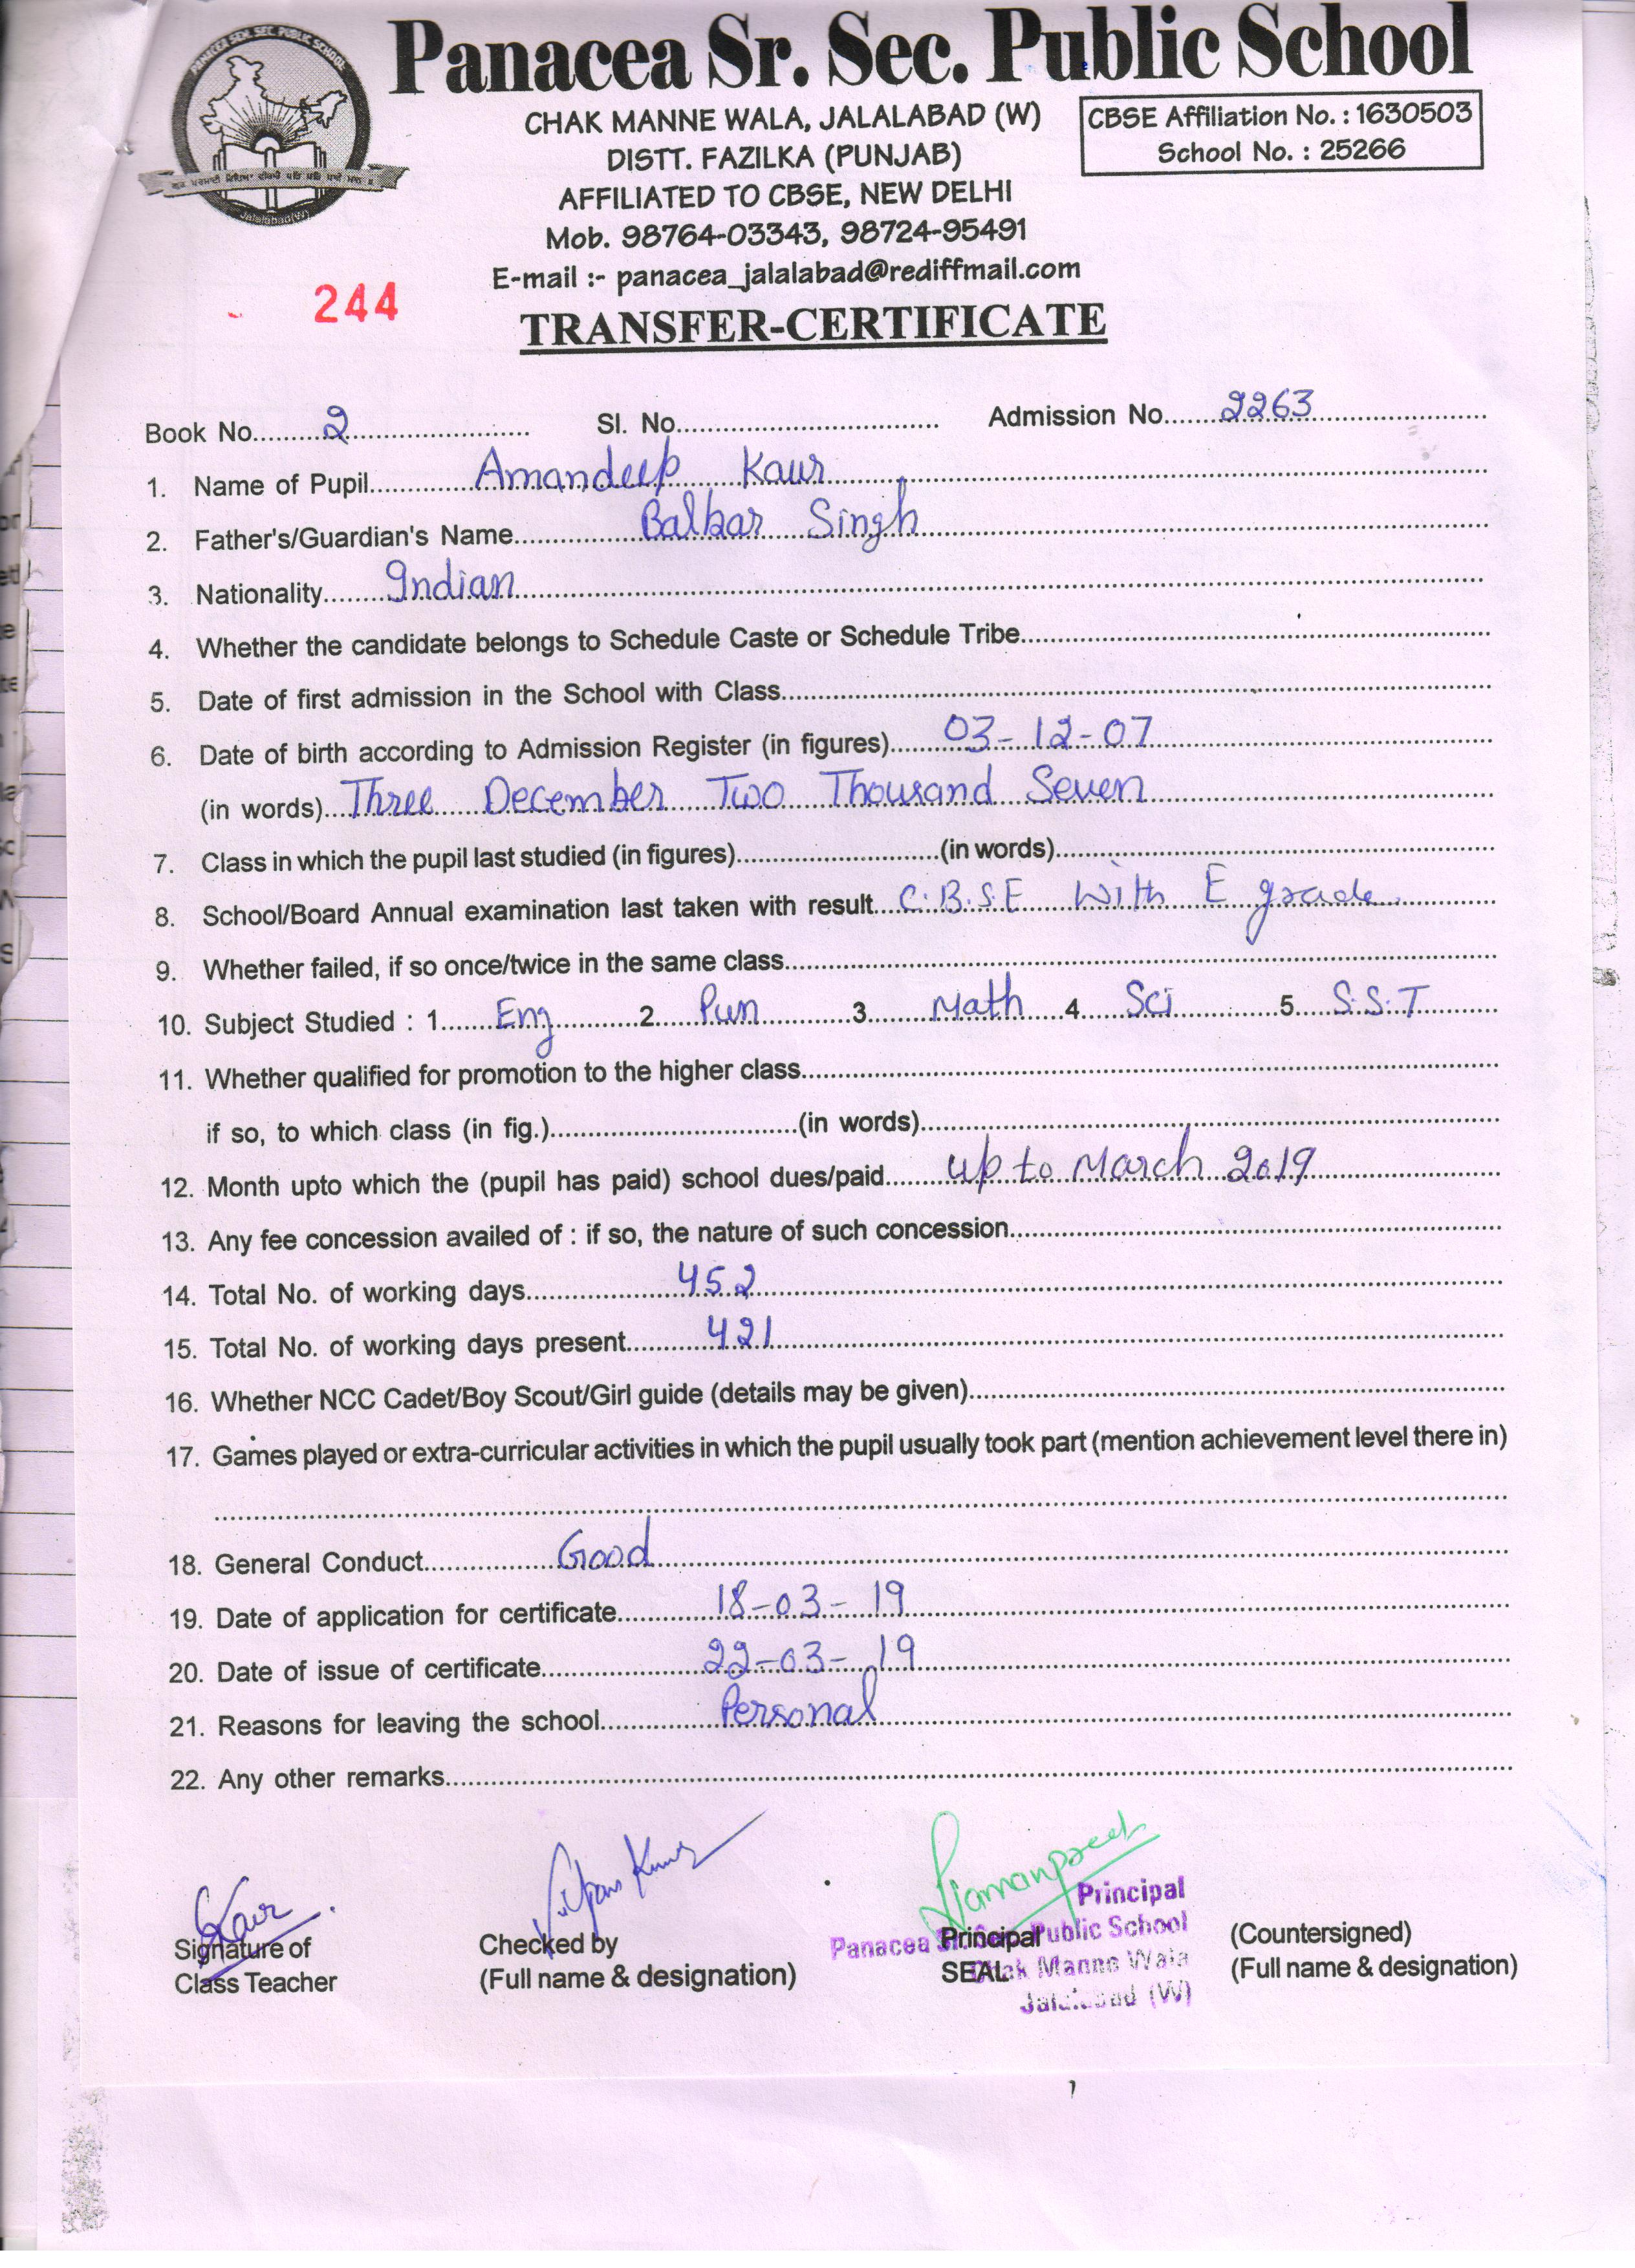 PANACEA SEN. SEC. PUBLIC SCHOOL
Jalalabad(W)
Panacea Sr. Sec. Public School
CHAK MANNE WALA, JALALABAD (W)
DISTT. FAZILKA (PUNJAB)
AFFILIATED TO CBSE, NEW DELHI
Mob. 98764-03343, 98724-95491
E-mail :- panacea_jalalabad@rediffmail.com
CBSE Affiliation No. : 1630503
School No. : 25266
244
TRANSFER-CERTIFICATE
Book No. 2 Sl. No. Admission No. 2263
1. Name of Pupil Amandeep Kaur
2. Father's/Guardian's Name Balkar Singh
3. Nationality Indian
4. Whether the candidate belongs to Schedule Caste or Schedule Tribe
5. Date of first admission in the School with Class
6. Date of birth according to Admission Register (in figures) 03-12-07
(in words) Three December Two Thousand Seven
7. Class in which the pupil last studied (in figures) (in words)
8. School/Board Annual examination last taken with result C.B.S.E With E grade.
9. Whether failed, if so once/twice in the same class
10. Subject Studied : 1 Eng 2. Pun 3. Math 4 Sci 5. S.S.T
11. Whether qualified for promotion to the higher class
if so, to which class (in fig.) (in words)
12. Month upto which the (pupil has paid) school dues/paid up to March 2019
13. Any fee concession availed of : if so, the nature of such concession
14. Total No. of working days 452
15. Total No. of working days present 421
16. Whether NCC Cadet/Boy Scout/Girl guide (details may be given)
17. Games played or extra-curricular activities in which the pupil usually took part (mention achievement level there in)
18. General Conduct Good
19. Date of application for certificate 18-03-19
20. Date of issue of certificate 22-03-19
21. Reasons for leaving the school Personal
22. Any other remarks
Kaur
Signature of
Class Teacher
Checked by
(Full name & designation)
Principal
SEAL
Principal
Panacea Public School
Manne Wala
Jalalabad (W)
(Countersigned)
(Full name & designation)